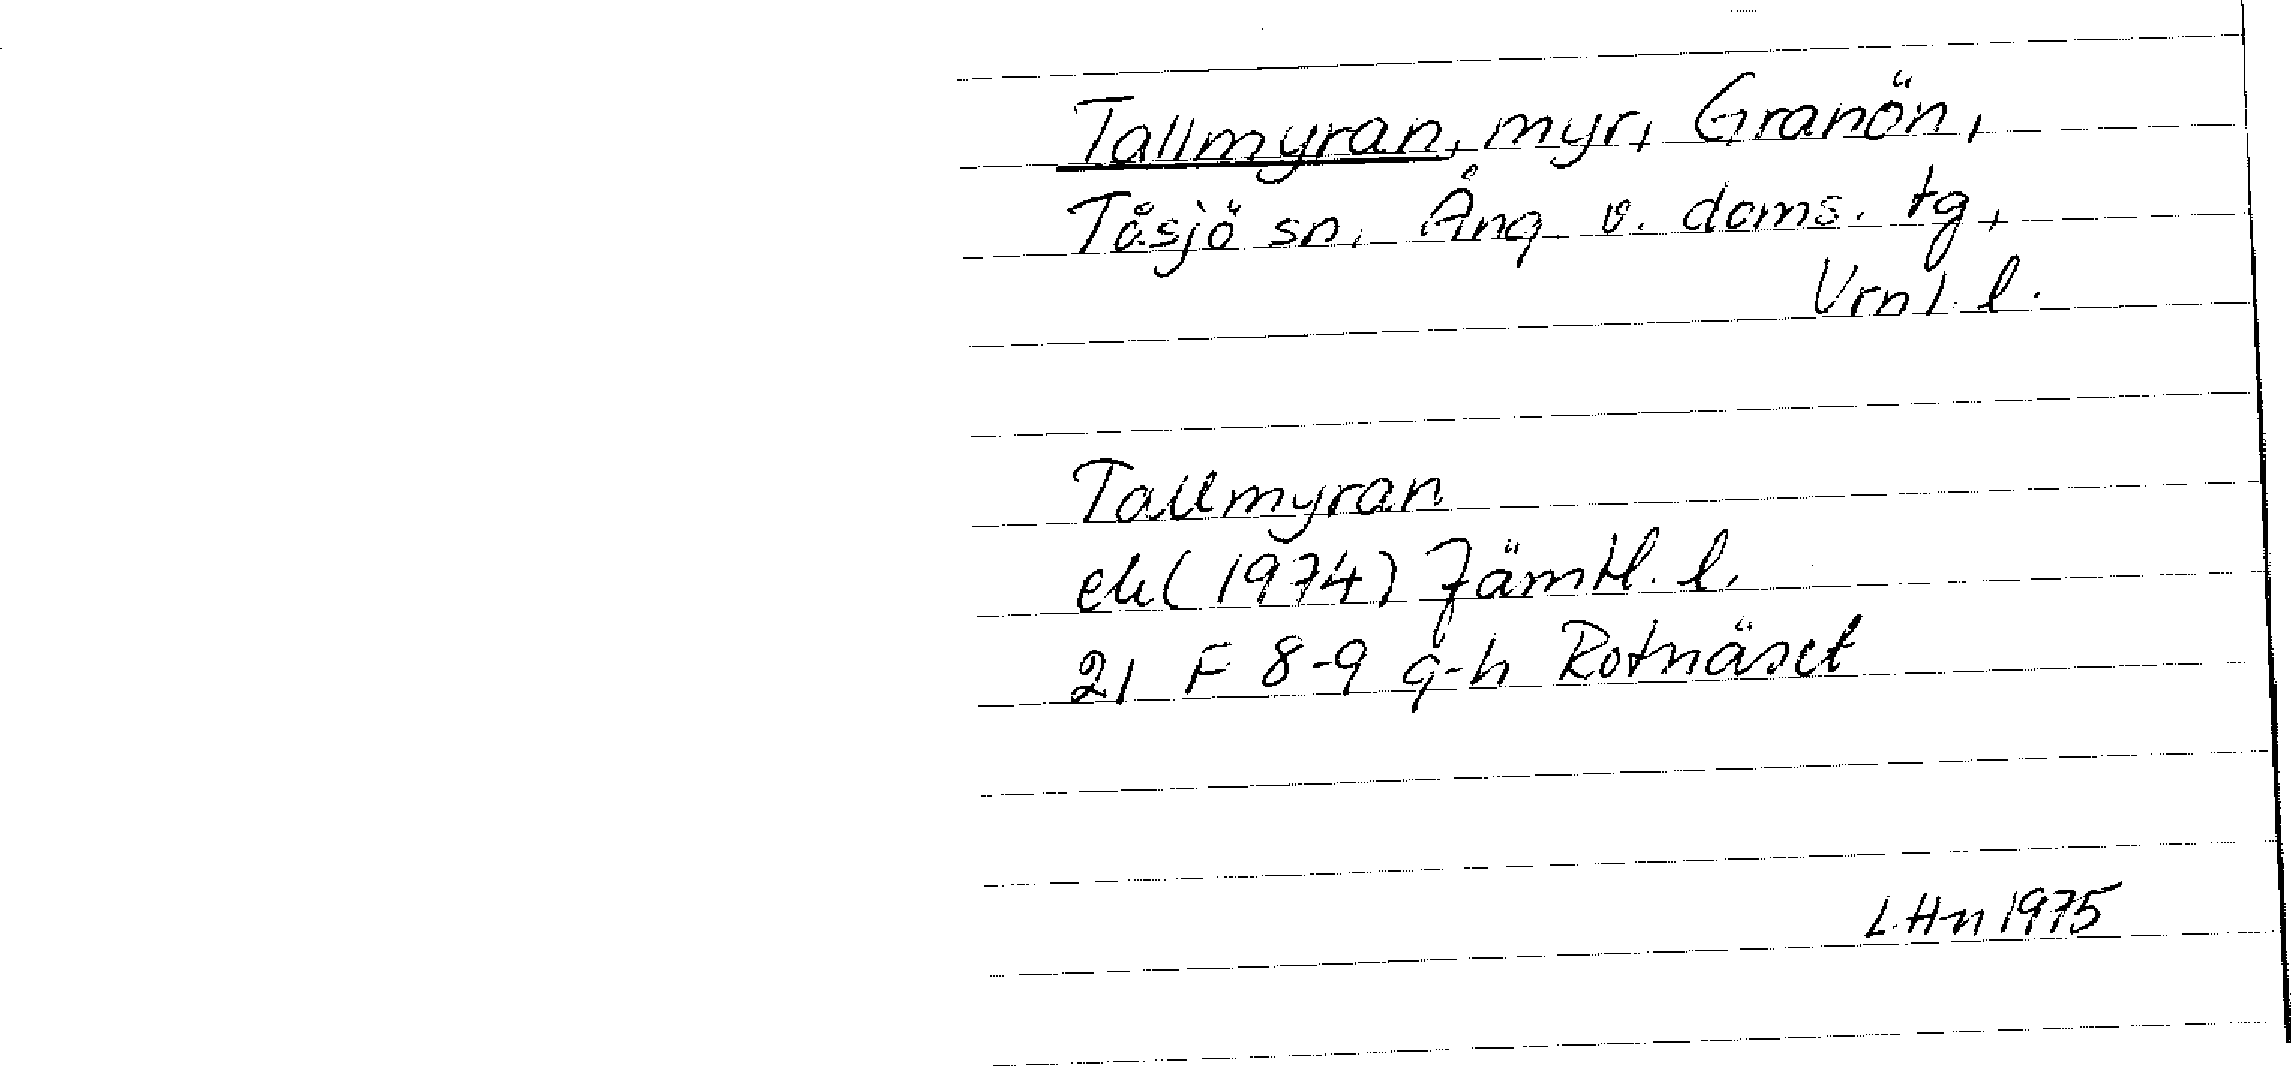 Tallmyran, myr, Granön,
Tåsjö sn, Ång v. doms. tg,
Vrnl. l.
Tallmyran
ek (1974) Jämtl. l.
21 F 8-9 g-h Rotnäset
L Hn 1975